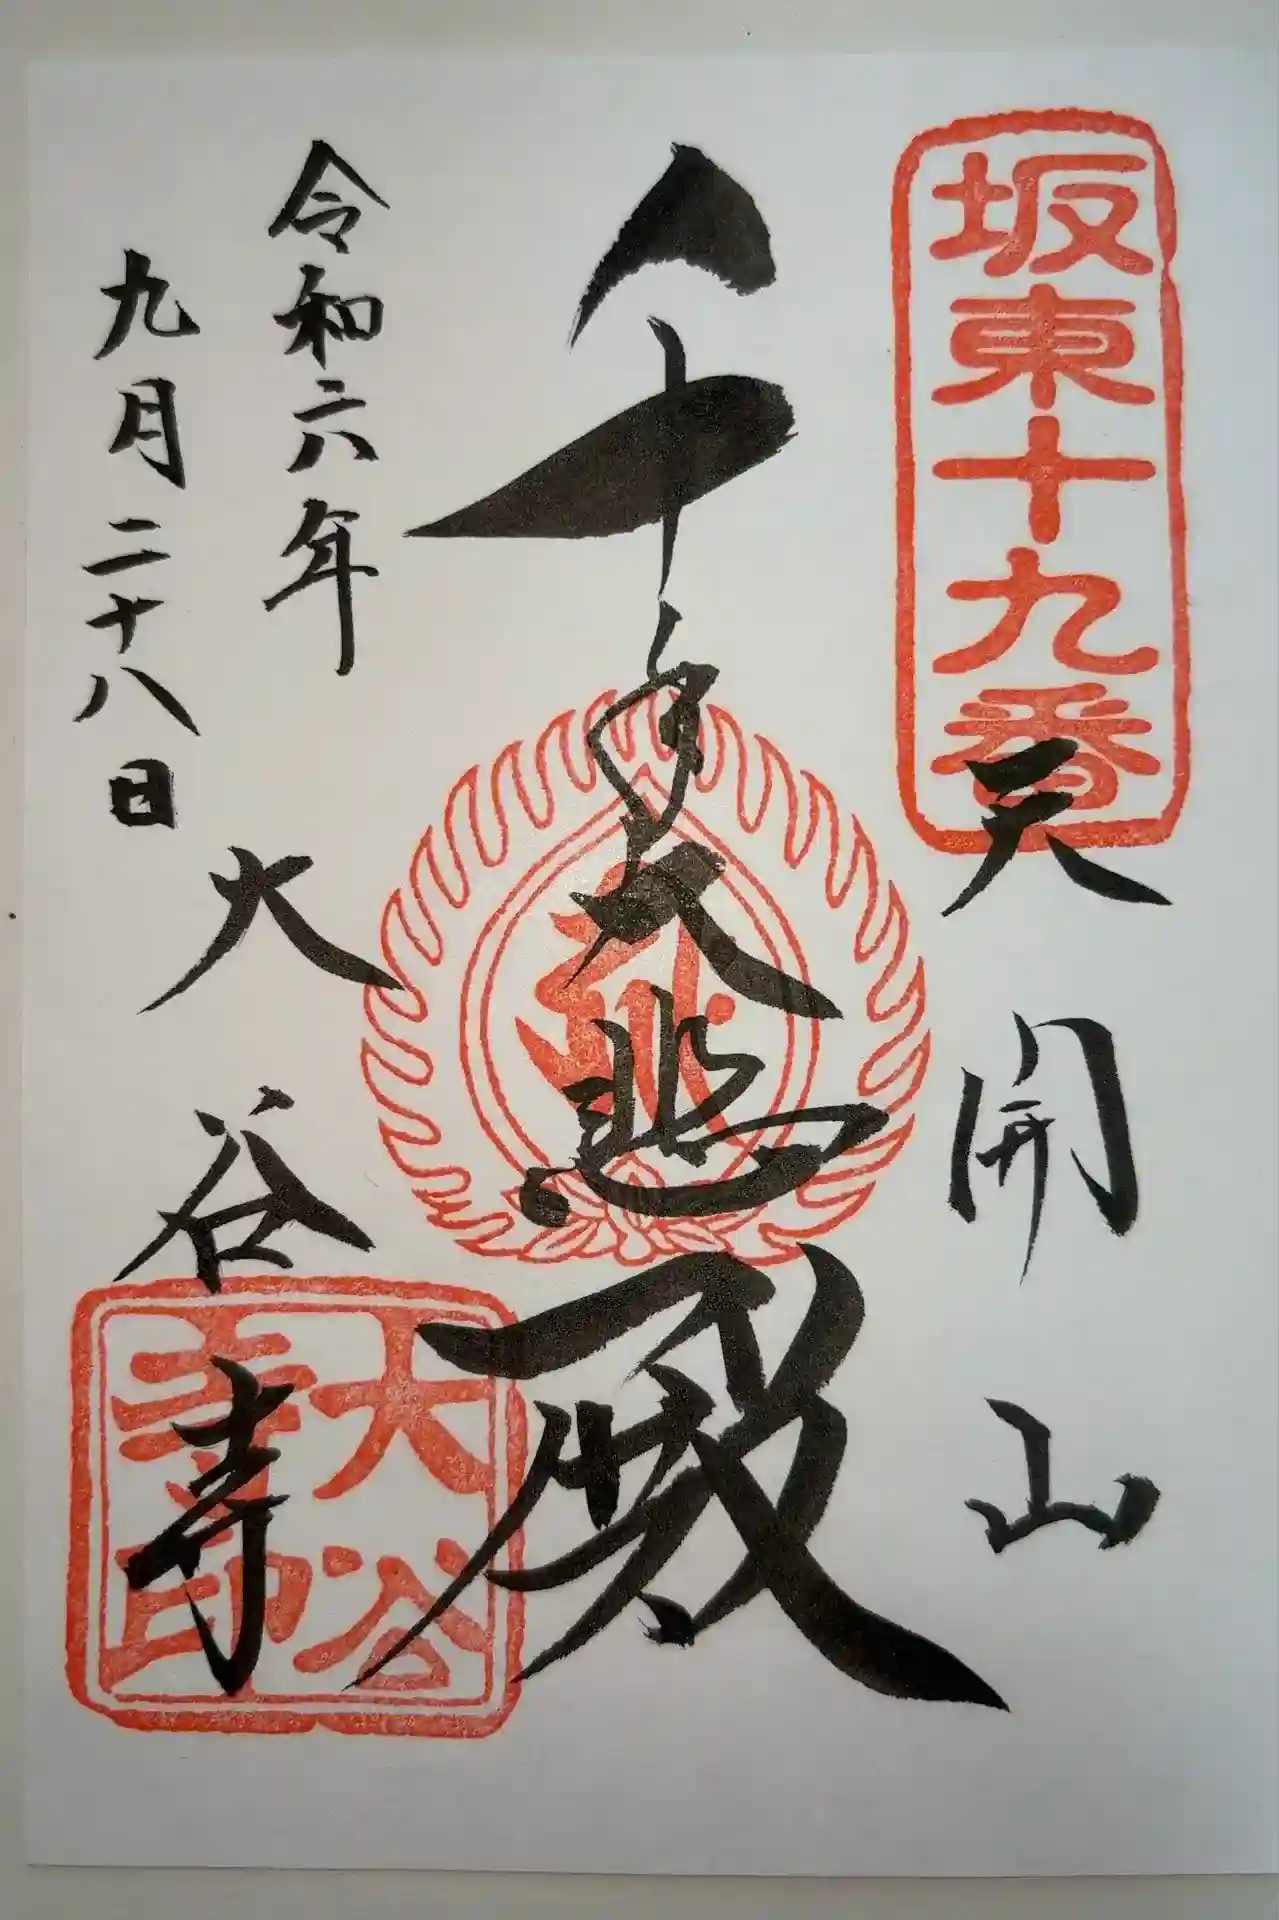 坂東十九番
天開山
千手大悲殿
令和六年
九月二十八日
大谷寺
大谷
寺印